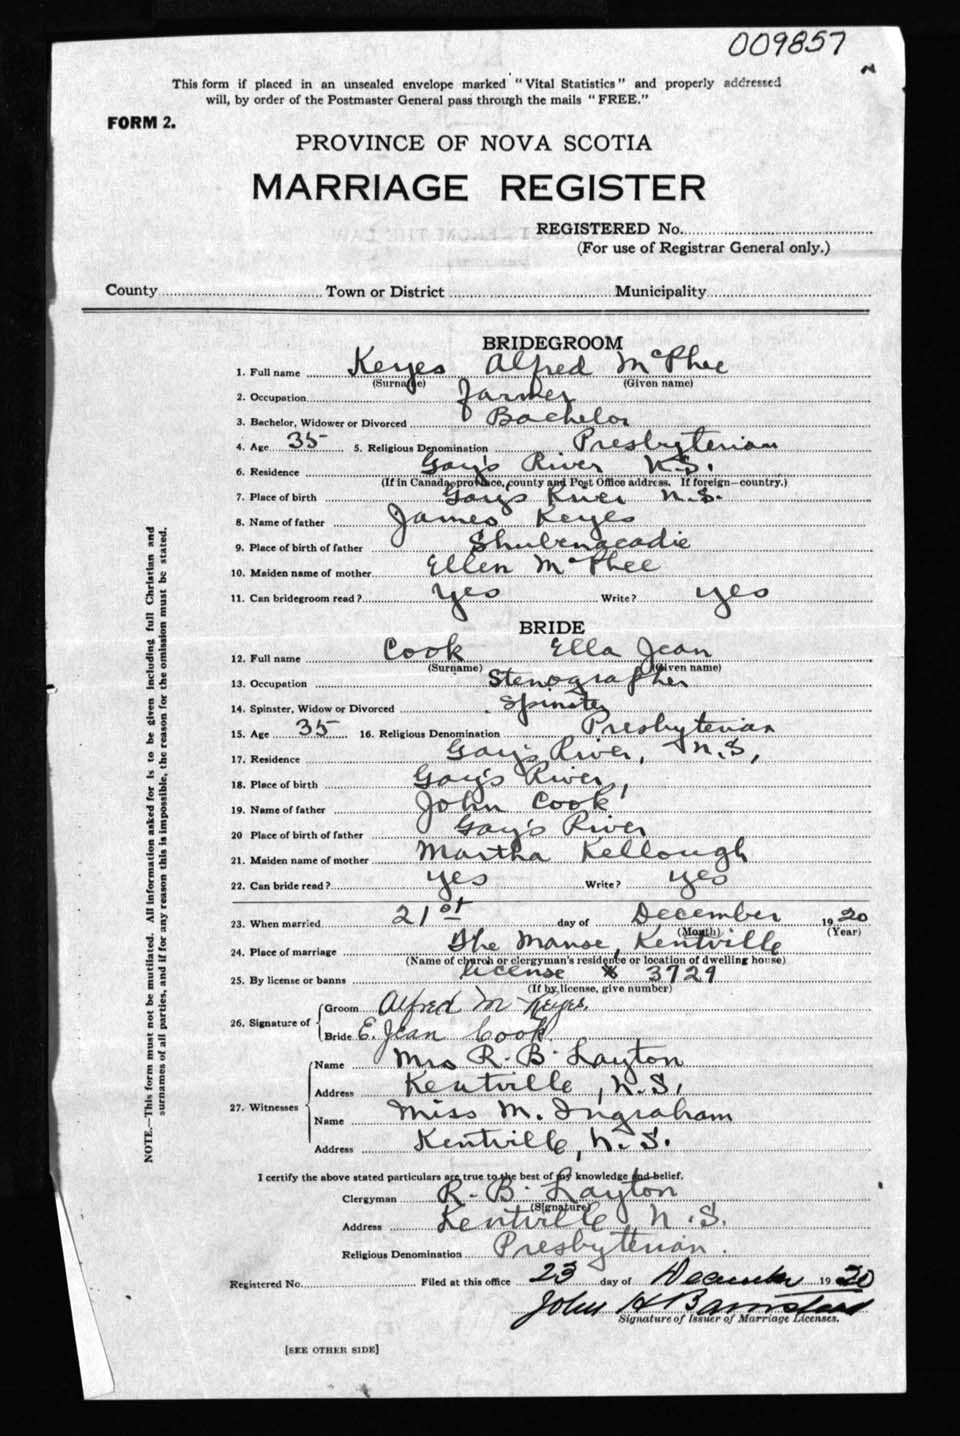 009857
This form if placed in an unsealed envelope marked "Vital Statistics" and properly addressed
will, by order of the Postmaster General pass through the mails "FREE."
FORM 2.
PROVINCE OF NOVA SCOTIA
MARRIAGE REGISTER
REGISTERED No.
(For use of Registrar General only.)
County Town or District Municipality
BRIDEGROOM
1. Full name Keyes Alfred McPhee
(Surname) (Given name)
2. Occupation Farmer
3. Bachelor, Widower or Divorced Bachelor
4. Age 35 5. Religious Denomination Presbyterian
6. Residence Gay's River N.S.
(If in Canada, province, county and Post Office address. If foreign—country.)
7. Place of birth Gay's River N.S.
8. Name of father James Keyes
9. Place of birth of father Shubenacadie
10. Maiden name of mother Ellen McPhee
11. Can bridegroom read? Yes Write? yes
BRIDE
12. Full name Cook Ella Jean
(Surname) (Given name)
13. Occupation Stenographer
14. Spinster, Widow or Divorced Spinster
15. Age 35 16. Religious Denomination Presbyterian
17. Residence Gay's River, N.S,
18. Place of birth Gay's River,
19. Name of father John Cook
20 Place of birth of father Gay's River
21. Maiden name of mother Martha Kellough
22. Can bride read? yes Write? yes
23. When married 21st day of December 1920
(Month) (Year)
24. Place of marriage The Manse, Kentville
(Name of church or clergyman's residence or location of dwelling house)
25. By license or banns License 3729
(If by license, give number)
26. Signature of
Groom Alfred M Keyes.
Bride E. Jean Cook.
27. Witnesses
Name Mrs R. B. Layton
Address Kentville, N.S,
Name Miss M. Ingraham
Address Kentville, N.S.
I certify the above stated particulars are true to the best of my knowledge and belief.
Clergyman R. B. Layton
(Signature)
Address Kentville N.S.
Religious Denomination Presbyterian.
Registered No. Filed at this office 23 day of December 1920
John H Barnstead
Signature of Issuer of Marriage Licenses.
[SEE OTHER SIDE]
NOTE.—This form must not be mutilated. All information asked for is to be given including full Christian and
surnames of all parties, and if for any reason this is impossible, the reason for the omission must be stated.